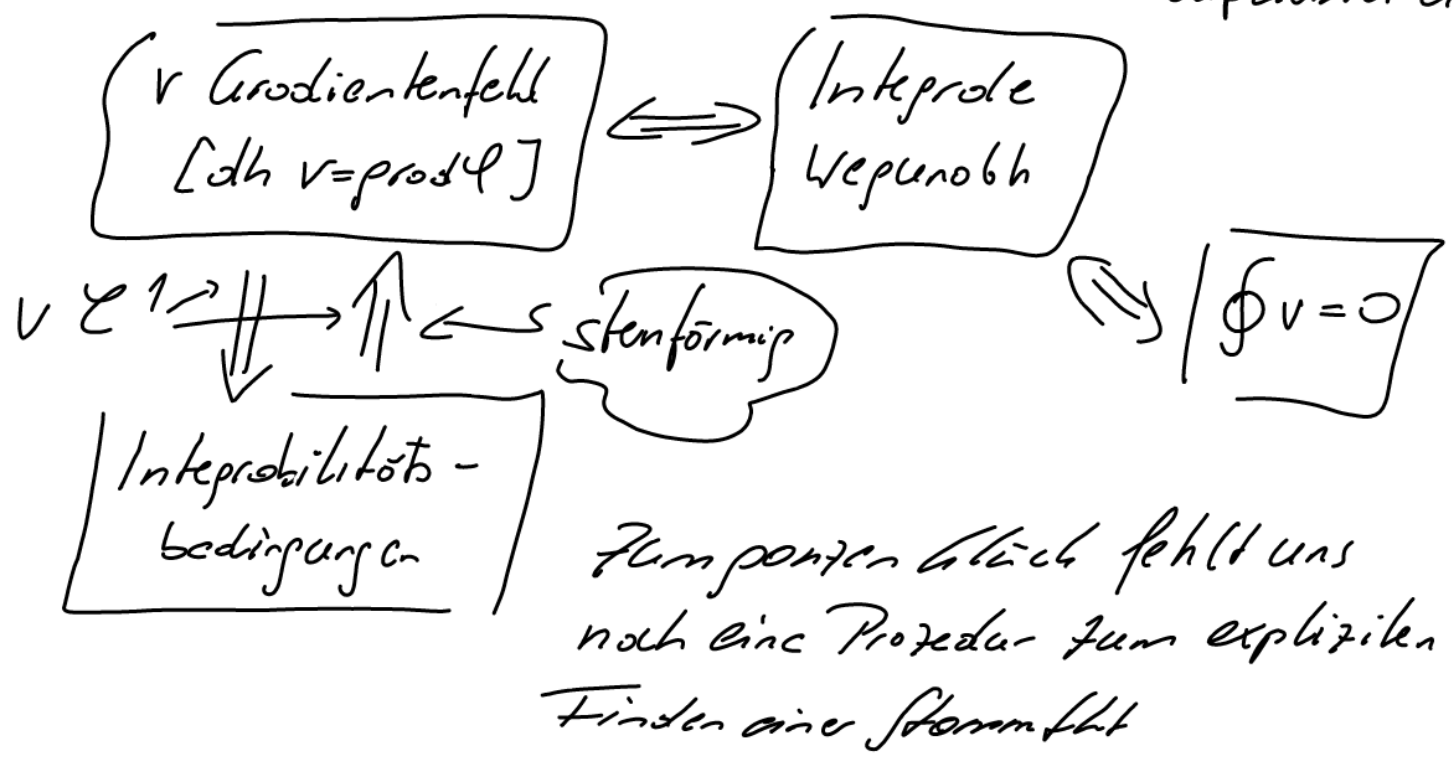 v Gradientenfeld
[dh v=grad φ]
⇔
Integrale
Wegunabh
∮ v = 0
v C¹
sternförmig
Integrabilitäts-
bedingungen
Zum ganzen Glück fehlt uns
noch eine Prozedur zum expliziten
Finden einer Stammfkt